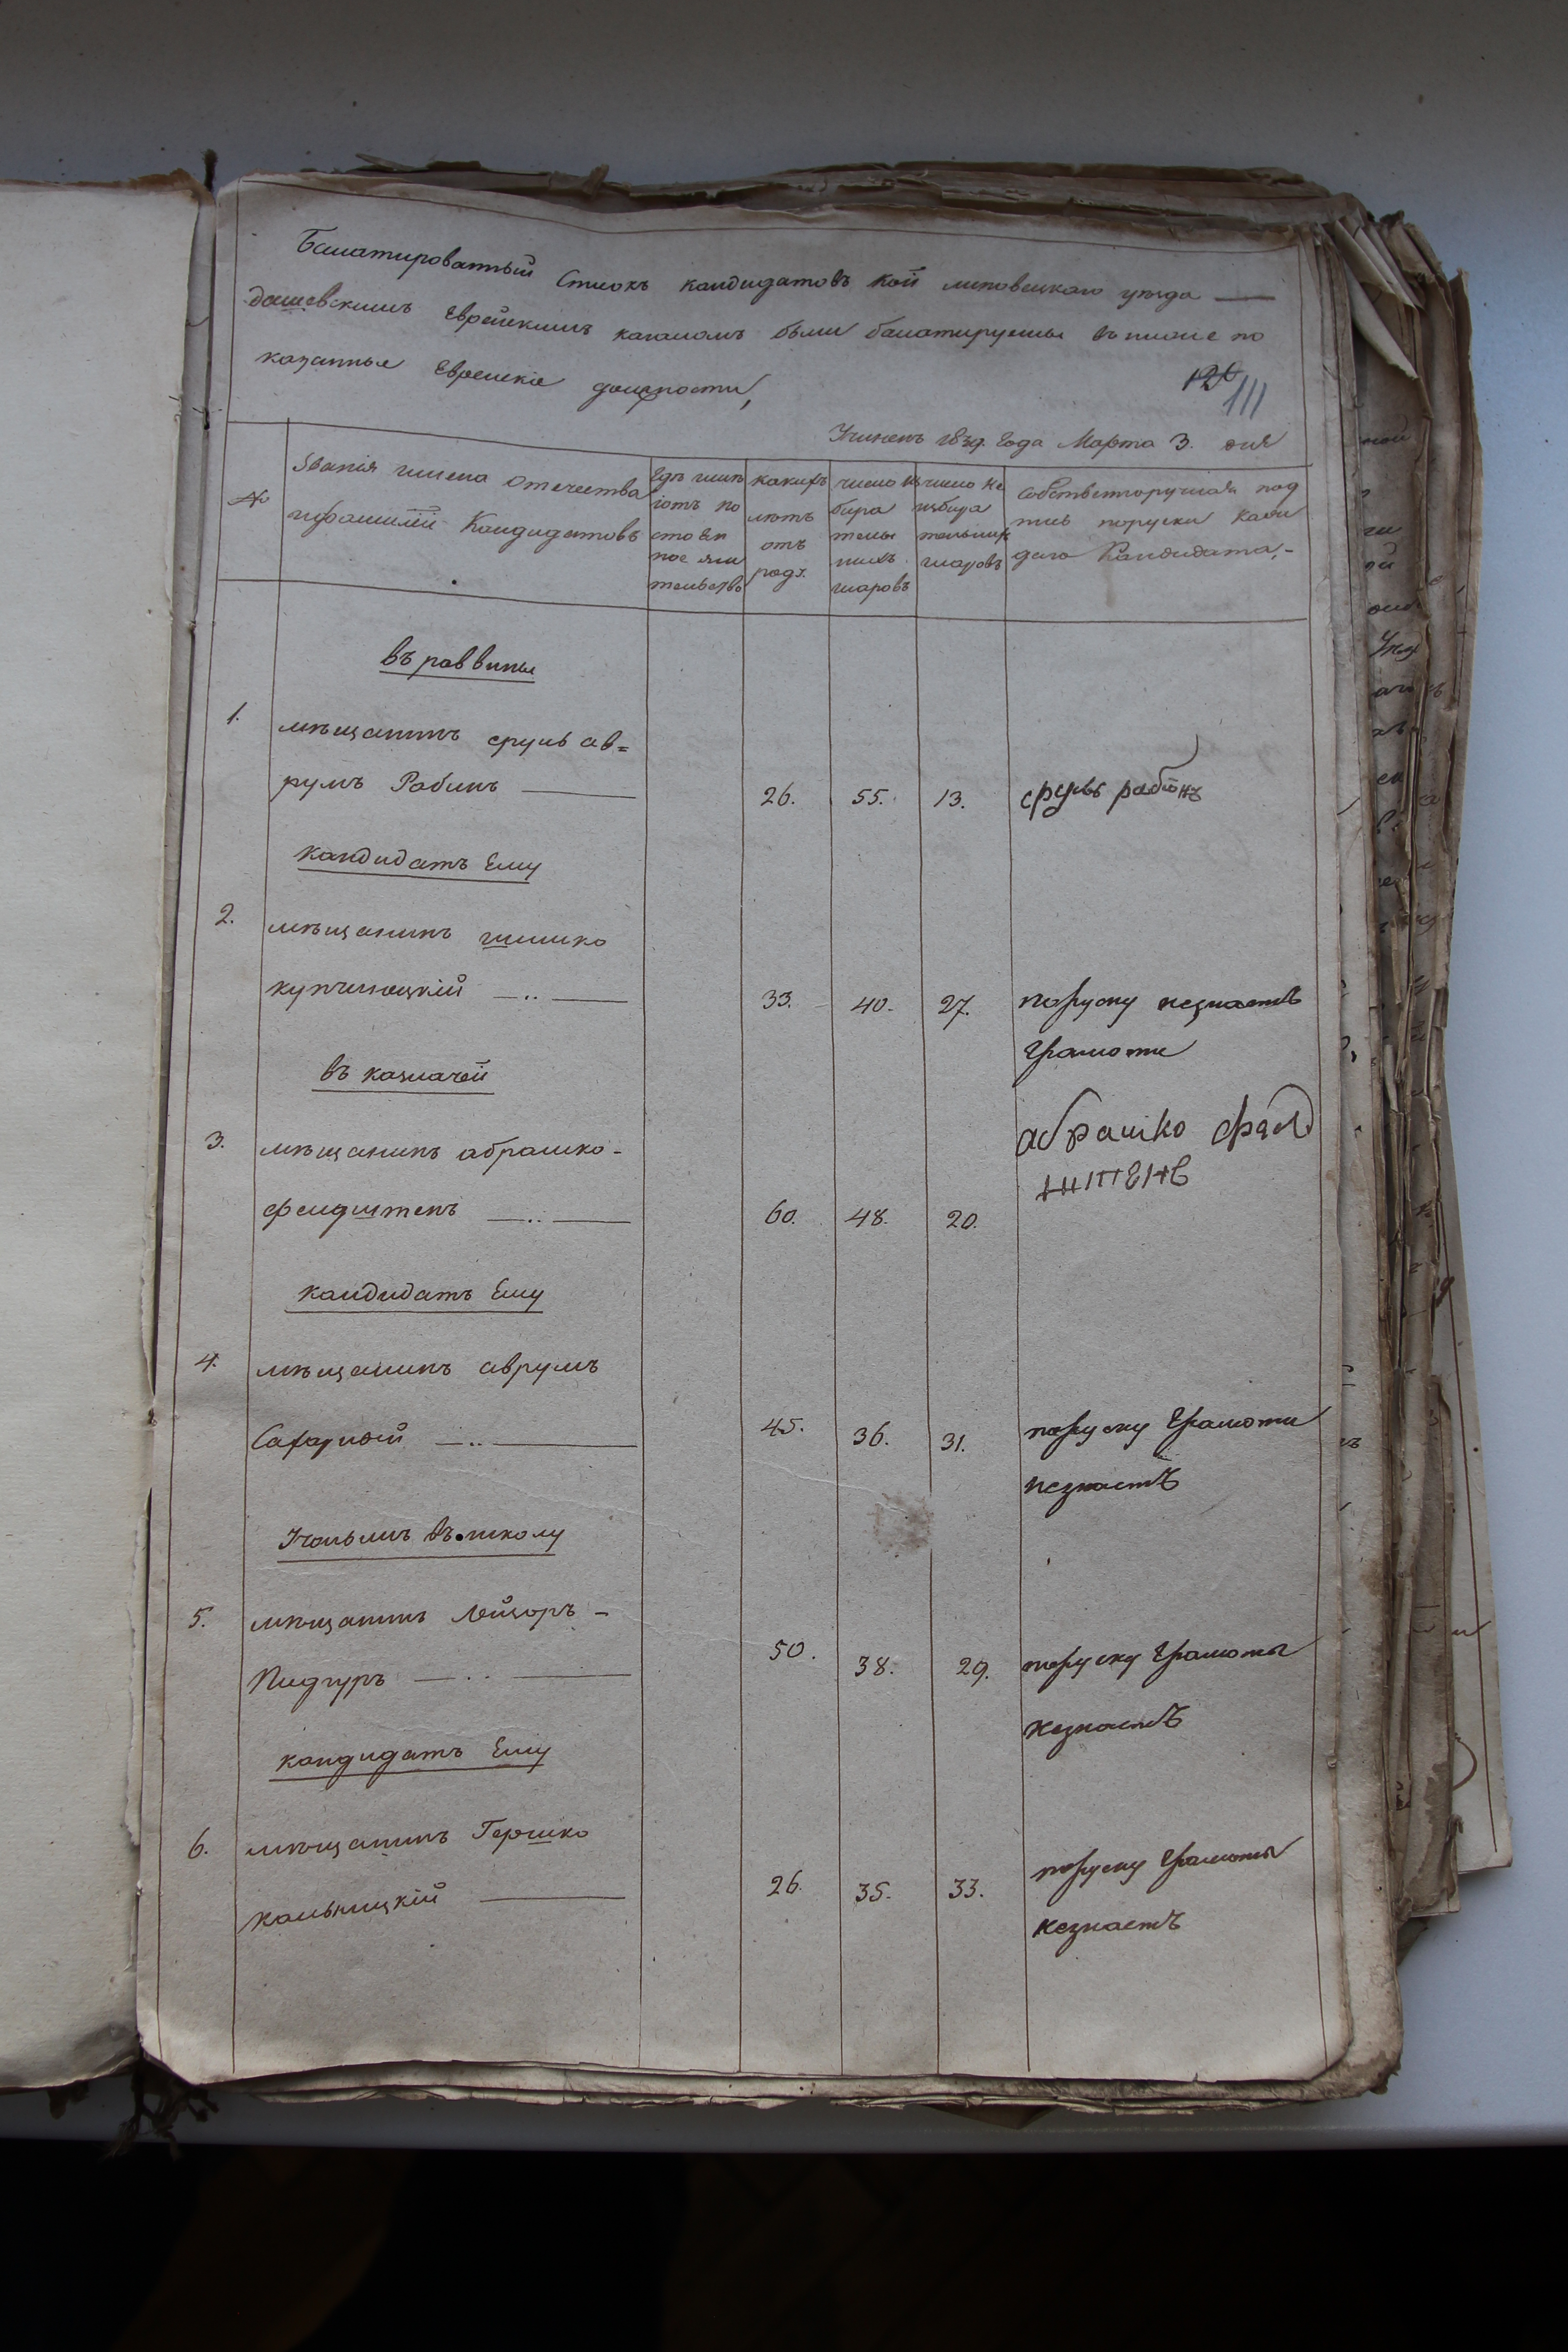 Балатированный Списокъ кандидатовъ кой липовецкаго уезда —
дашевскимъ Еврейскимъ кагаломъ были балатируемы въ ниже по
казанные Еврейскіе должности,
126
111
Учиненъ 1839. Года Марта 3. дня
№
Званія имена Отечества
ифамилій Кандидатовъ
Гдѣ имѣ
ютъ по
стоян
ное жи
тельство
какихъ
лѣтъ
отъ
роду.
число из
бира
тель
ныхъ
шаровъ
число не
избира
тельныхъ
шаровъ
Собственноручная под
пись поруски каж
даго Кандидата,-
въ раввины
1. мѣщанинъ сруль ав=
румъ Рабинъ — 26. 55. 13. сруль рабінъ
кандидатъ Ему
2. мѣщанинъ шимко
купчинецкій — .. — 33. 40. 27. поруску незнаетъ
Грамоти
въ казначей
3. мѣщанинъ абрашко - абрашко фелд
фелдштенъ — .. — 60. 48. 20. штенъ
кандидатъ Ему
4. мѣщанинъ аврумъ
Сахарной — .. — 45. 36. 31. поруску Грамоти
незнаетъ
Ученымъ въ школу
5. мѣщанинъ Лейзоръ -
Пидгуръ — .. — 50. 38. 29. поруску Грамоты
незнаетъ
кандидатъ Ему
6. мѣщанинъ Гершко
кальницкій — 26. 35. 33. поруску Грамоты
незнаетъ